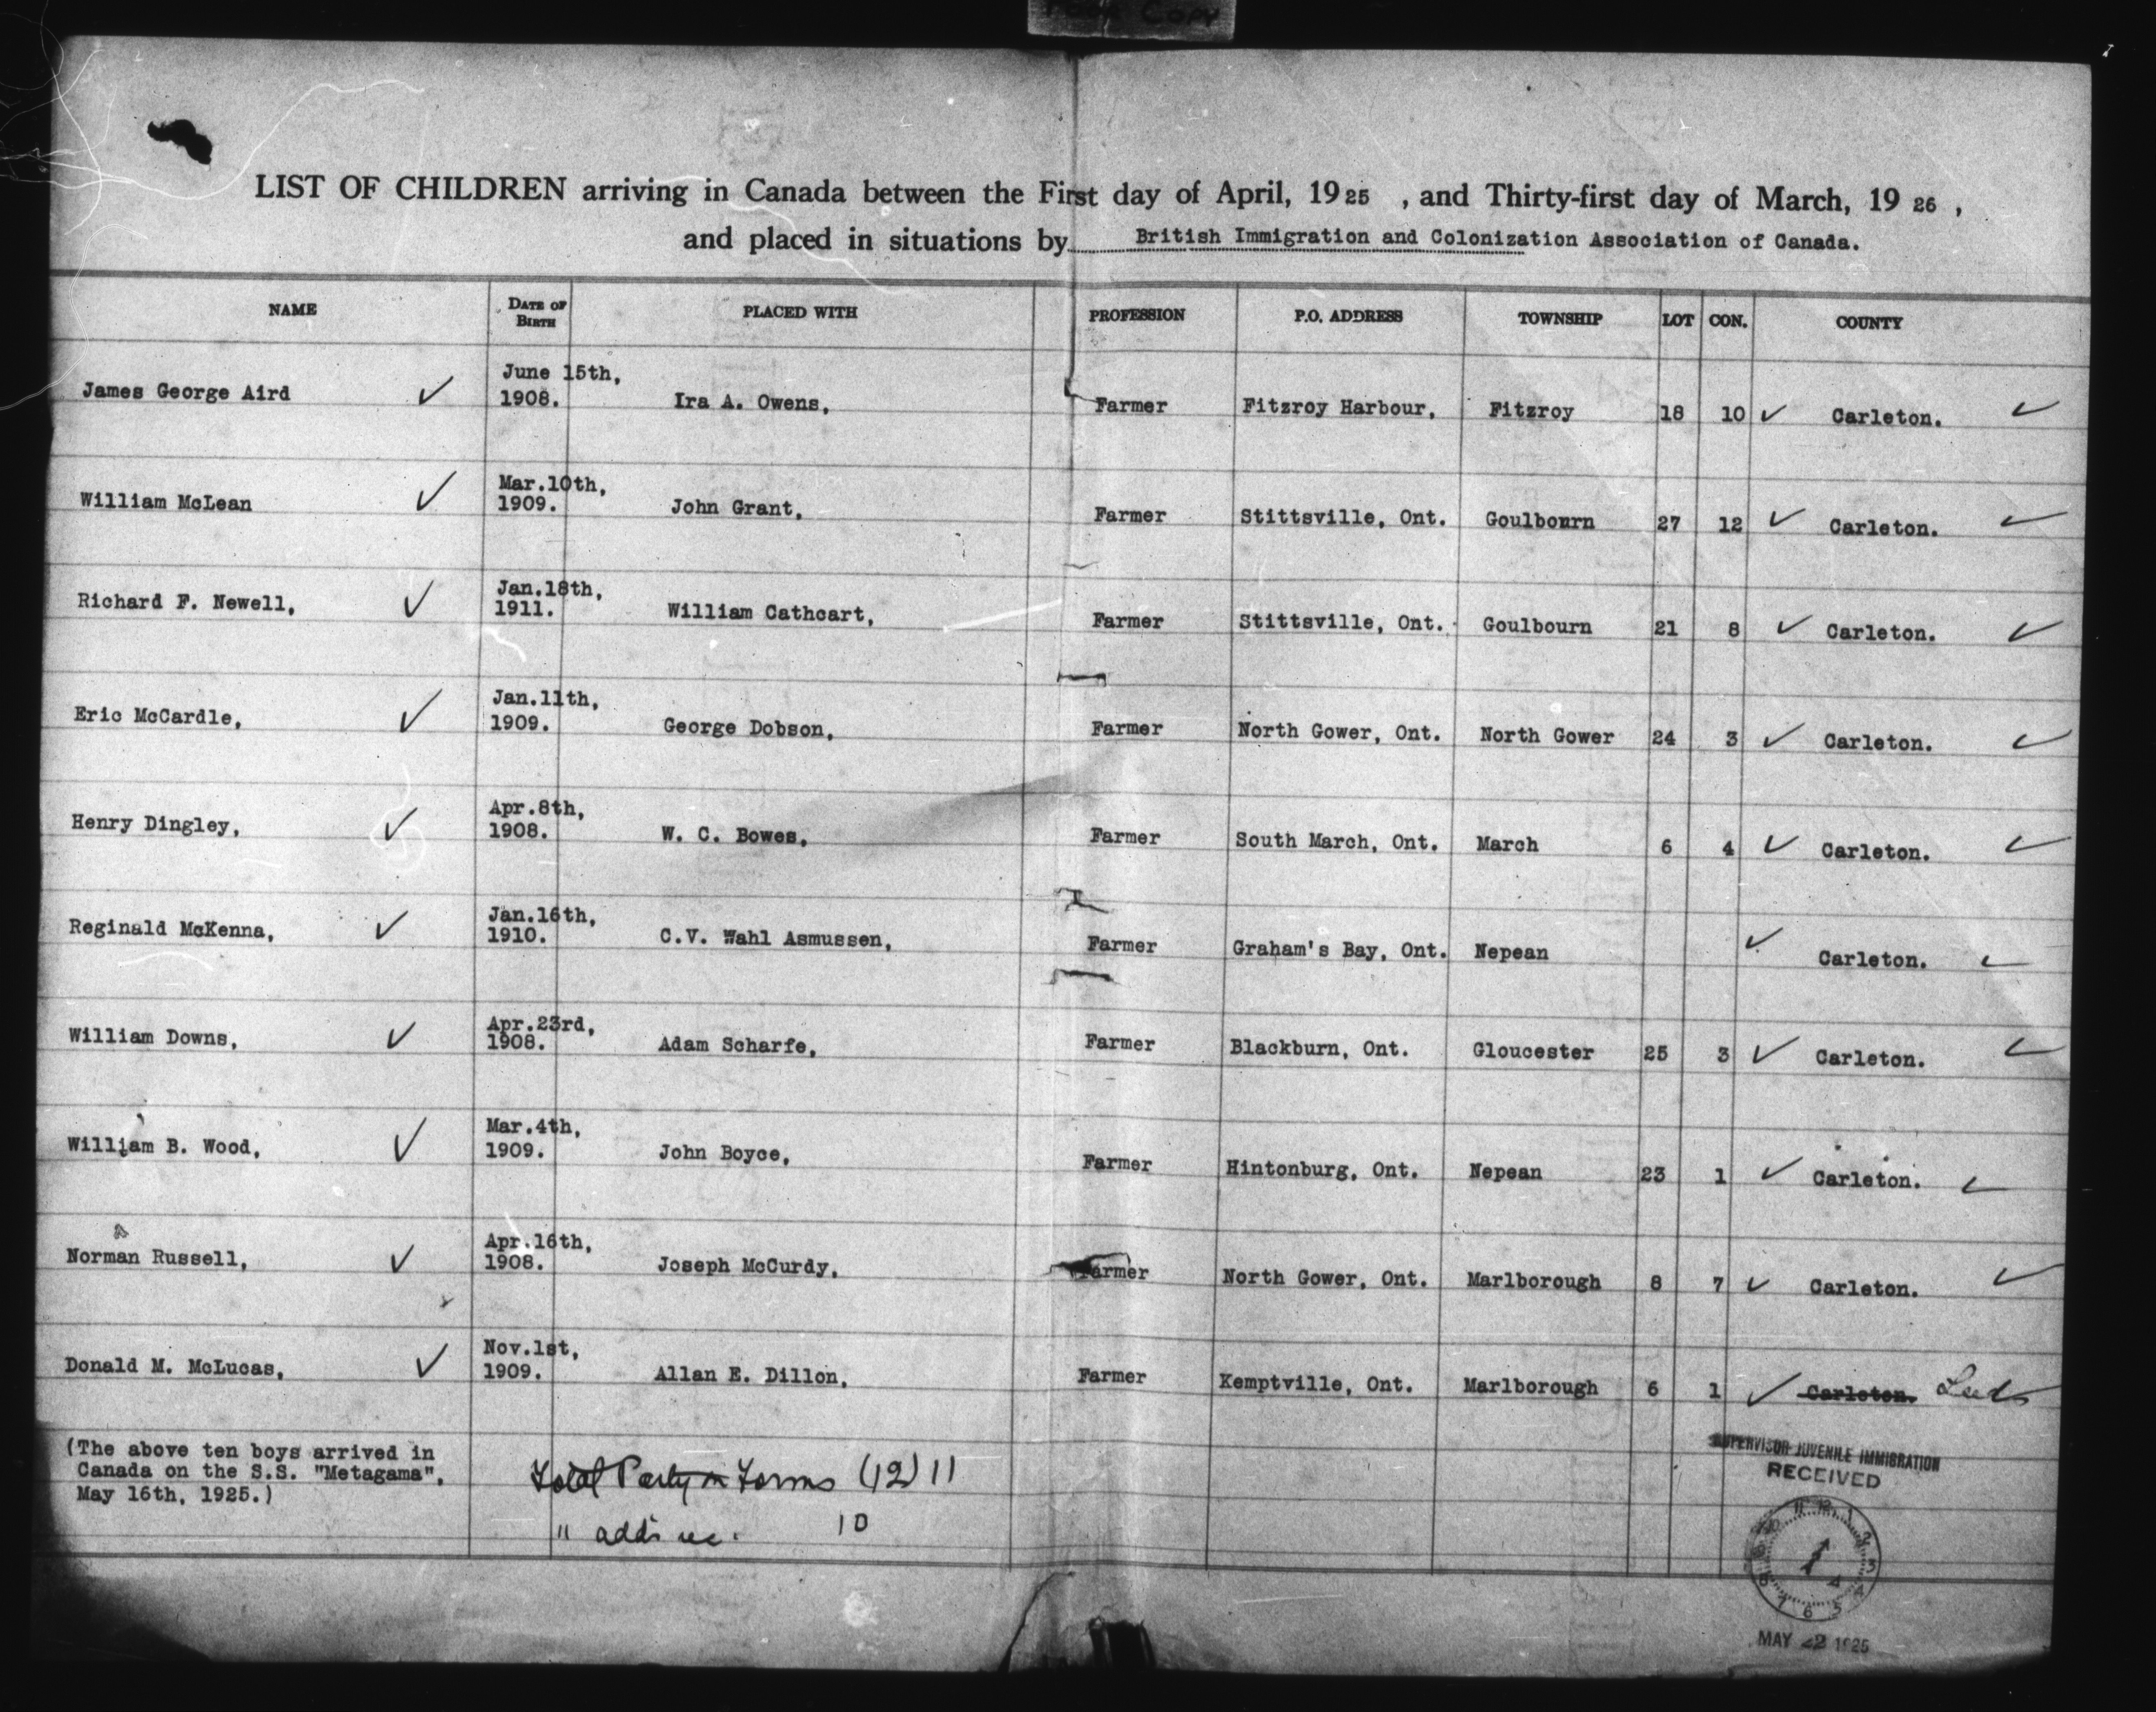 Copy
LIST OF CHILDREN arriving in Canada between the First day of April, 1925 , and Thirty-first day of March, 1926 ,
and placed in situations by British Immigration and Colonization Association of Canada.
NAME DATE OF BIRTH PLACED WITH PROFESSION P.O. ADDRESS TOWNSHIP LOT CON. COUNTY
James George Aird ✓ June 15th, 1908. Ira A. Owens, Farmer Fitzroy Harbour, Fitzroy 18 10 ✓ Carleton. ✓
William McLean ✓ Mar.10th, 1909. John Grant, Farmer Stittsville, Ont. Goulbourn 27 12 ✓ Carleton. ✓
Richard F. Newell, ✓ Jan.18th, 1911. William Cathcart, Farmer Stittsville, Ont. Goulbourn 21 8 ✓ Carleton. ✓
Eric McCardle, ✓ Jan.11th, 1909. George Dobson, Farmer North Gower, Ont. North Gower 24 3 ✓ Carleton. ✓
Henry Dingley, ✓ Apr.8th, 1908. W. C. Bowes, Farmer South March, Ont. March 6 4 ✓ Carleton. ✓
Reginald McKenna, ✓ Jan.16th, 1910. C.V. Wahl Asmussen, Farmer Graham's Bay, Ont. Nepean ✓ Carleton. ✓
William Downs, ✓ Apr.23rd, 1908. Adam Scharfe, Farmer Blackburn, Ont. Gloucester 25 3 ✓ Carleton. ✓
William B. Wood, ✓ Mar.4th, 1909. John Boyce, Farmer Hintonburg, Ont. Nepean 23 1 ✓ Carleton. ✓
Norman Russell, ✓ Apr.16th, 1908. Joseph McCurdy, Farmer North Gower, Ont. Marlborough 8 7 ✓ Carleton. ✓
Donald M. McLucas, ✓ Nov.1st, 1909. Allan E. Dillon, Farmer Kemptville, Ont. Marlborough 6 1 ✓ Carleton. Leeds
(The above ten boys arrived in
Canada on the S.S. "Metagama",
May 16th, 1925.)
Total Party on Forms (12) 11
" adds rec. 10
SUPERVISOR JUVENILE IMMIGRATION
RECEIVED
MAY 22 1925